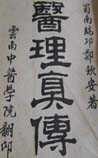 蜀南臨邛鄭欽安著
醫理真傳
雲南中醫學院翻印